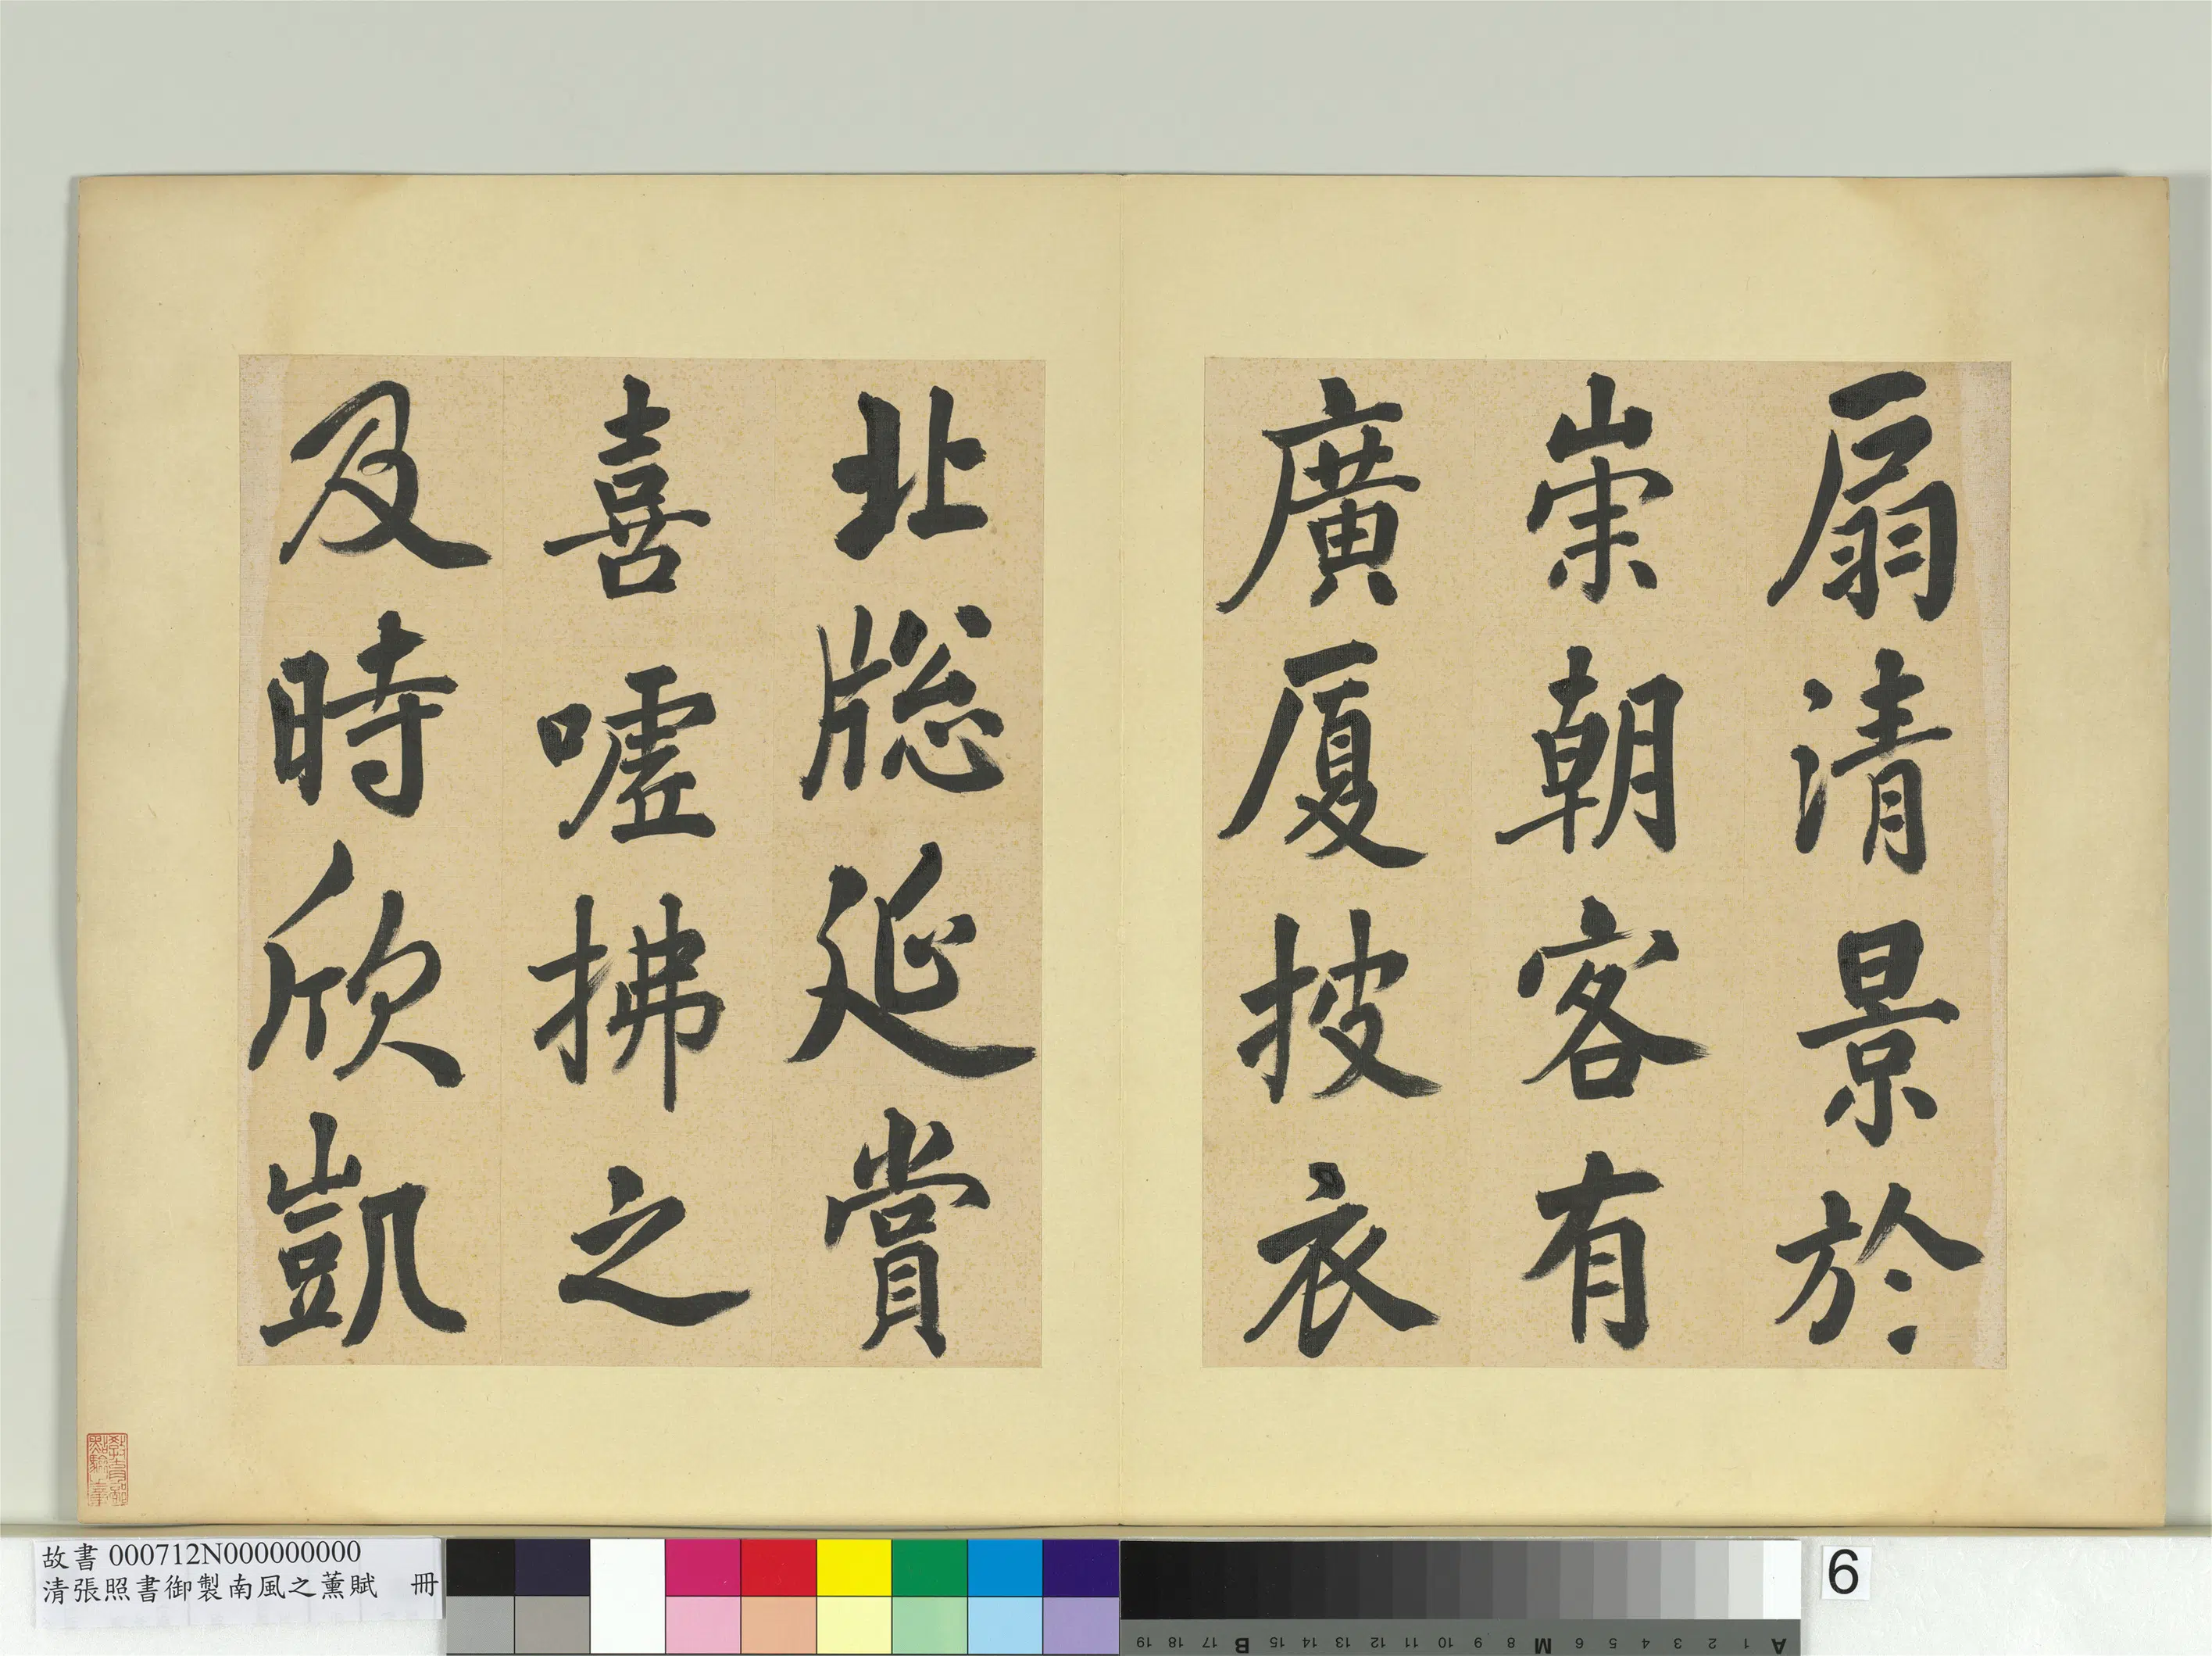 扇清景於
崇朝客有
廣厦披衣
北牕延賞
喜噓拂之
及時欣凱
教育部
點驗之章
故書 000712N000000000
清張照書御製南風之薰賦 冊
6
A 1 2 3 4 5 6 M 8 9 10 11 12 13 14 15 B 17 18 19